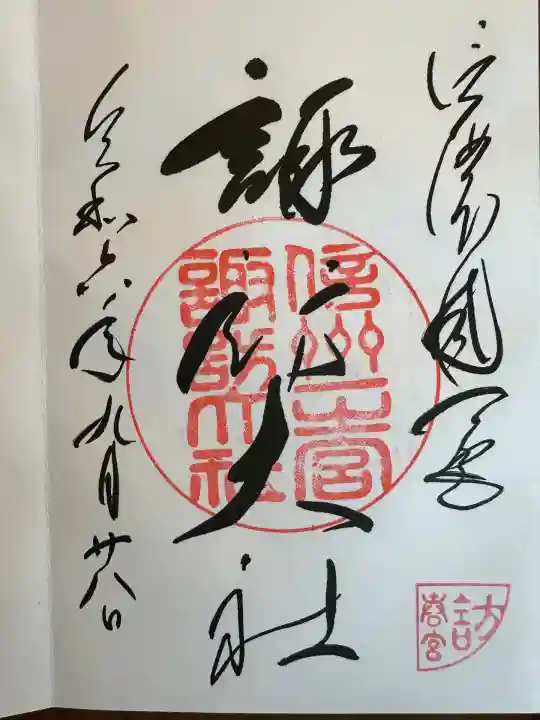 信濃國一之宮
諏訪大社
信州一之宮
諏訪大社
令和六年九月廿八日
諏訪
春宮